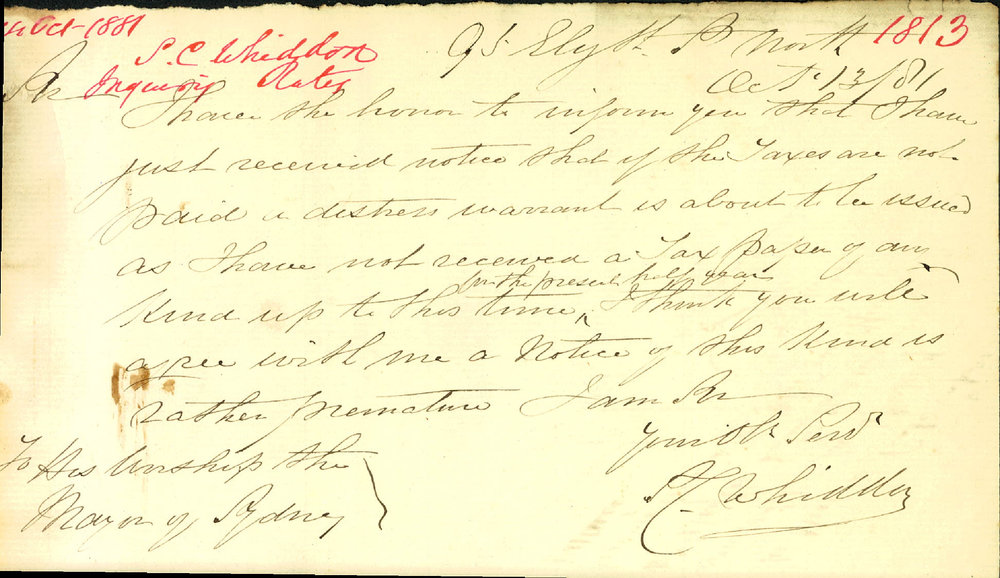 14 Oct - 1881
S. C. Whiddon
Inquiry Rates
1813
95 Elizth St North
Oct 13/81
Sir
I have the honor to inform you that I have
just received notice that if the Taxes are not
paid a distress warrant is about to be issued
as I have not received a Tax paper of any
kind up to this time for the present half year I think you will
agree with me a Notice of this kind is
rather premature I am Sir
your Ob Servt
S C Whiddon
To His Worship the
Mayor of Sydney